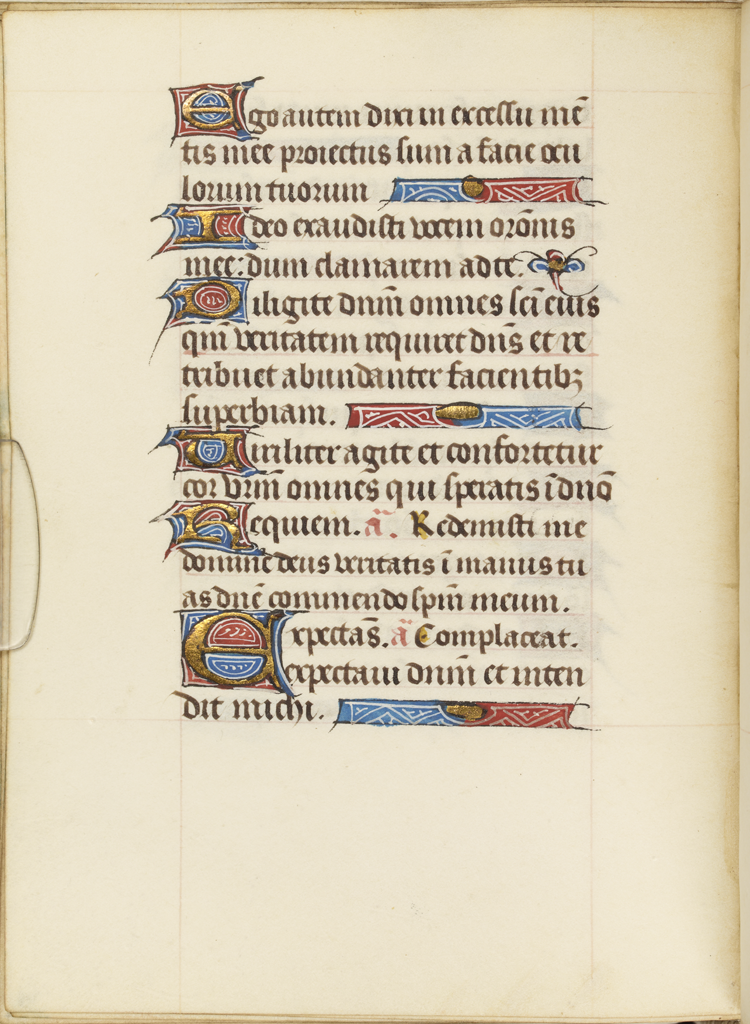 Ego autem dixi in excessu mē
tis mee proiectus sum a facie ocu
lorum tuorum
Ideo exaudisti vocem orōnis
mee: dum clamarem ad te.
Diligite dnm̄ omnes sc̄i eius
qm̄ veritatem requiret dn̄s et re
tribuet abundanter facientibꝫ
superbiam.
Uiriliter agite et confortetur
cor vrm̄ omnes qui speratis ī dn̄o
Requiem. a̅. Redemisti me
domine deus veritatis ī manus tu
as dn̄e commendo spm̄ meum.
Expectās. a̅ Complaceat.
expectaui dnm̄ et inten
dit michi.